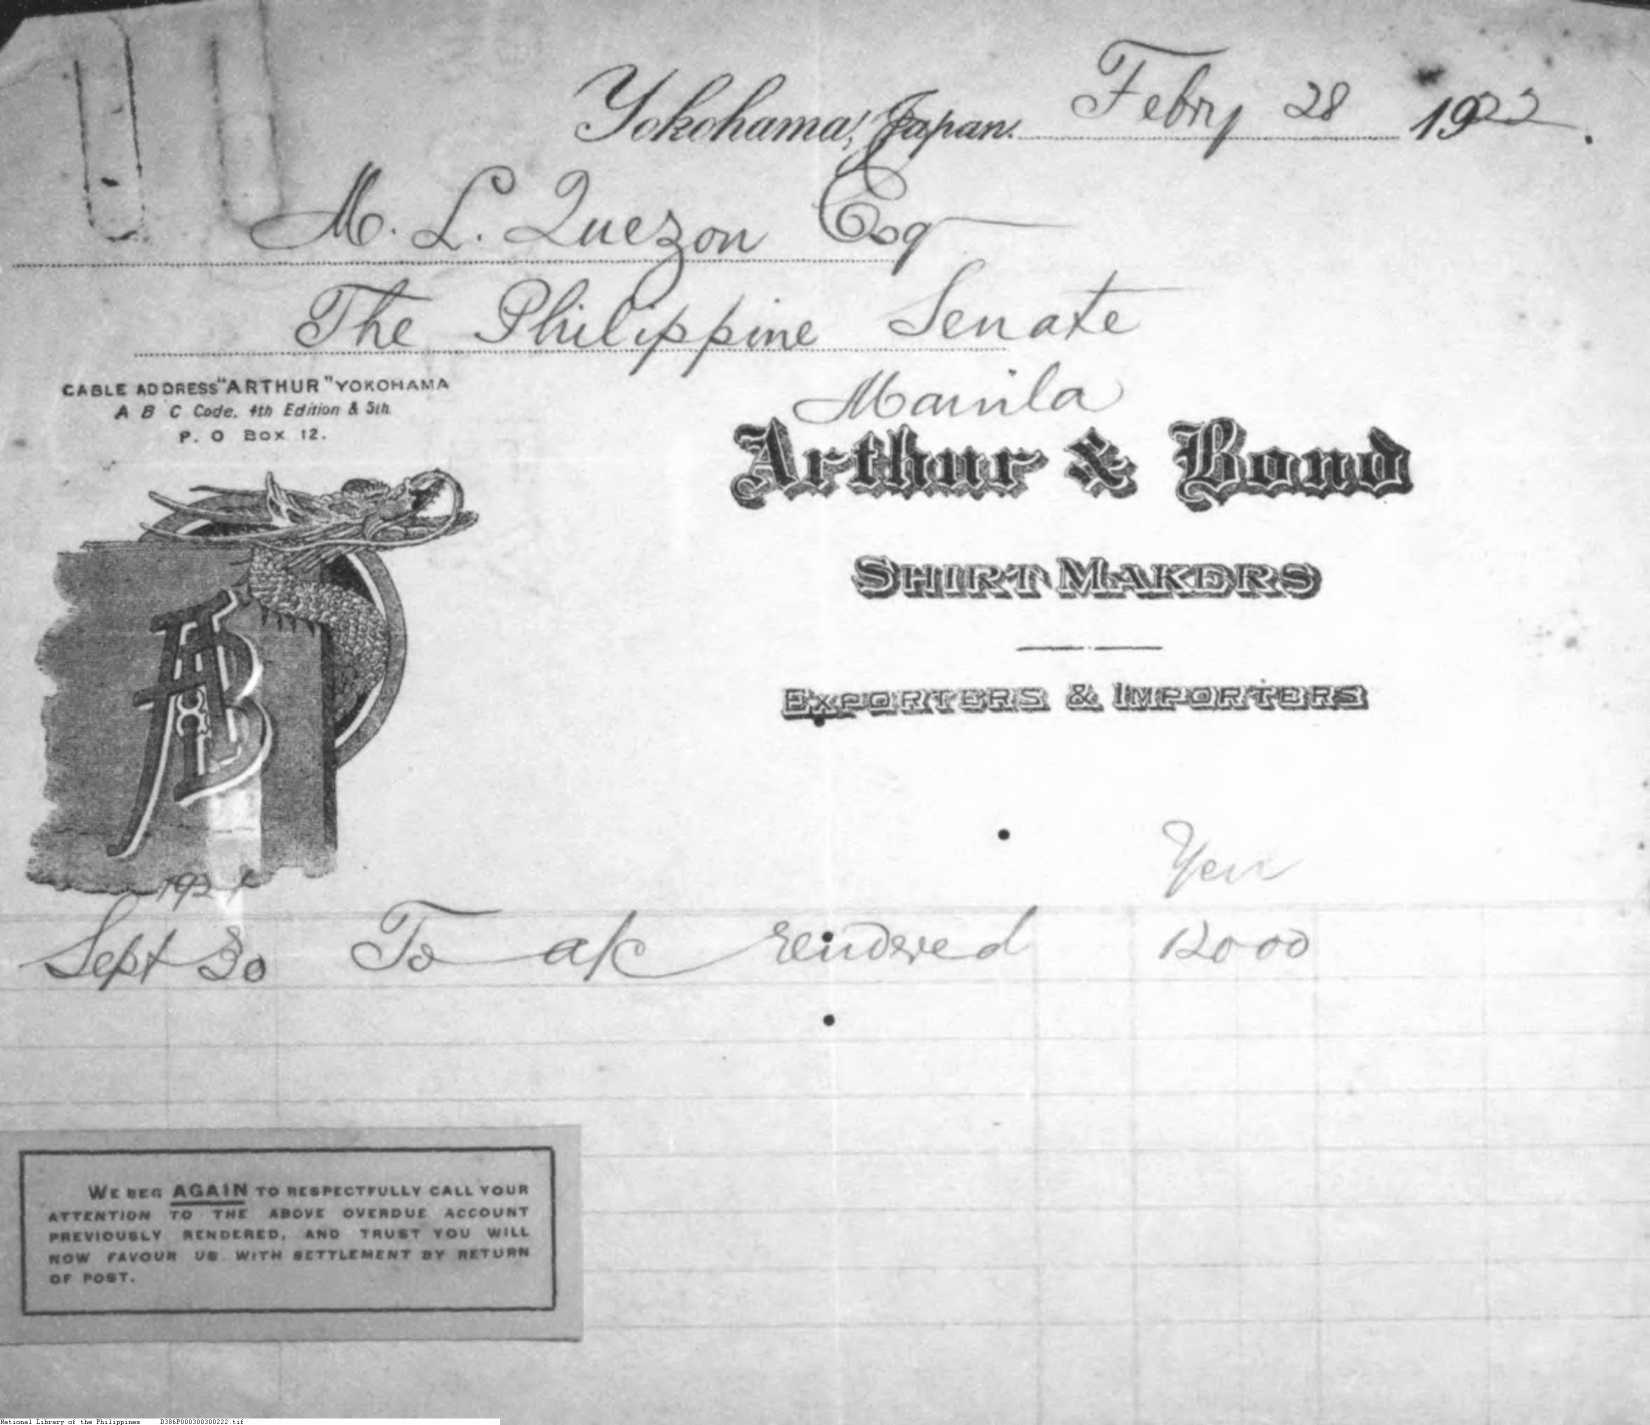 Yokohama, Japan. Febry 28 1922.
M. L. Quezon Esq
The Philippine Senate
Manila
CABLE ADDRESS "ARTHUR" YOKOHAMA
A B C Code, 4th Edition & 5th.
P. O Box 12.
Arthur & Bond
SHIRT MAKERS
EXPORTERS & IMPORTERS
AB
Yen
1921
Sept 30 To a/c rendered 120 00
WE BEG AGAIN TO RESPECTFULLY CALL YOUR
ATTENTION TO THE ABOVE OVERDUE ACCOUNT
PREVIOUSLY RENDERED, AND TRUST YOU WILL
NOW FAVOUR US WITH SETTLEMENT BY RETURN
OF POST.
National Library of the Philippines D386P000300300222.tif